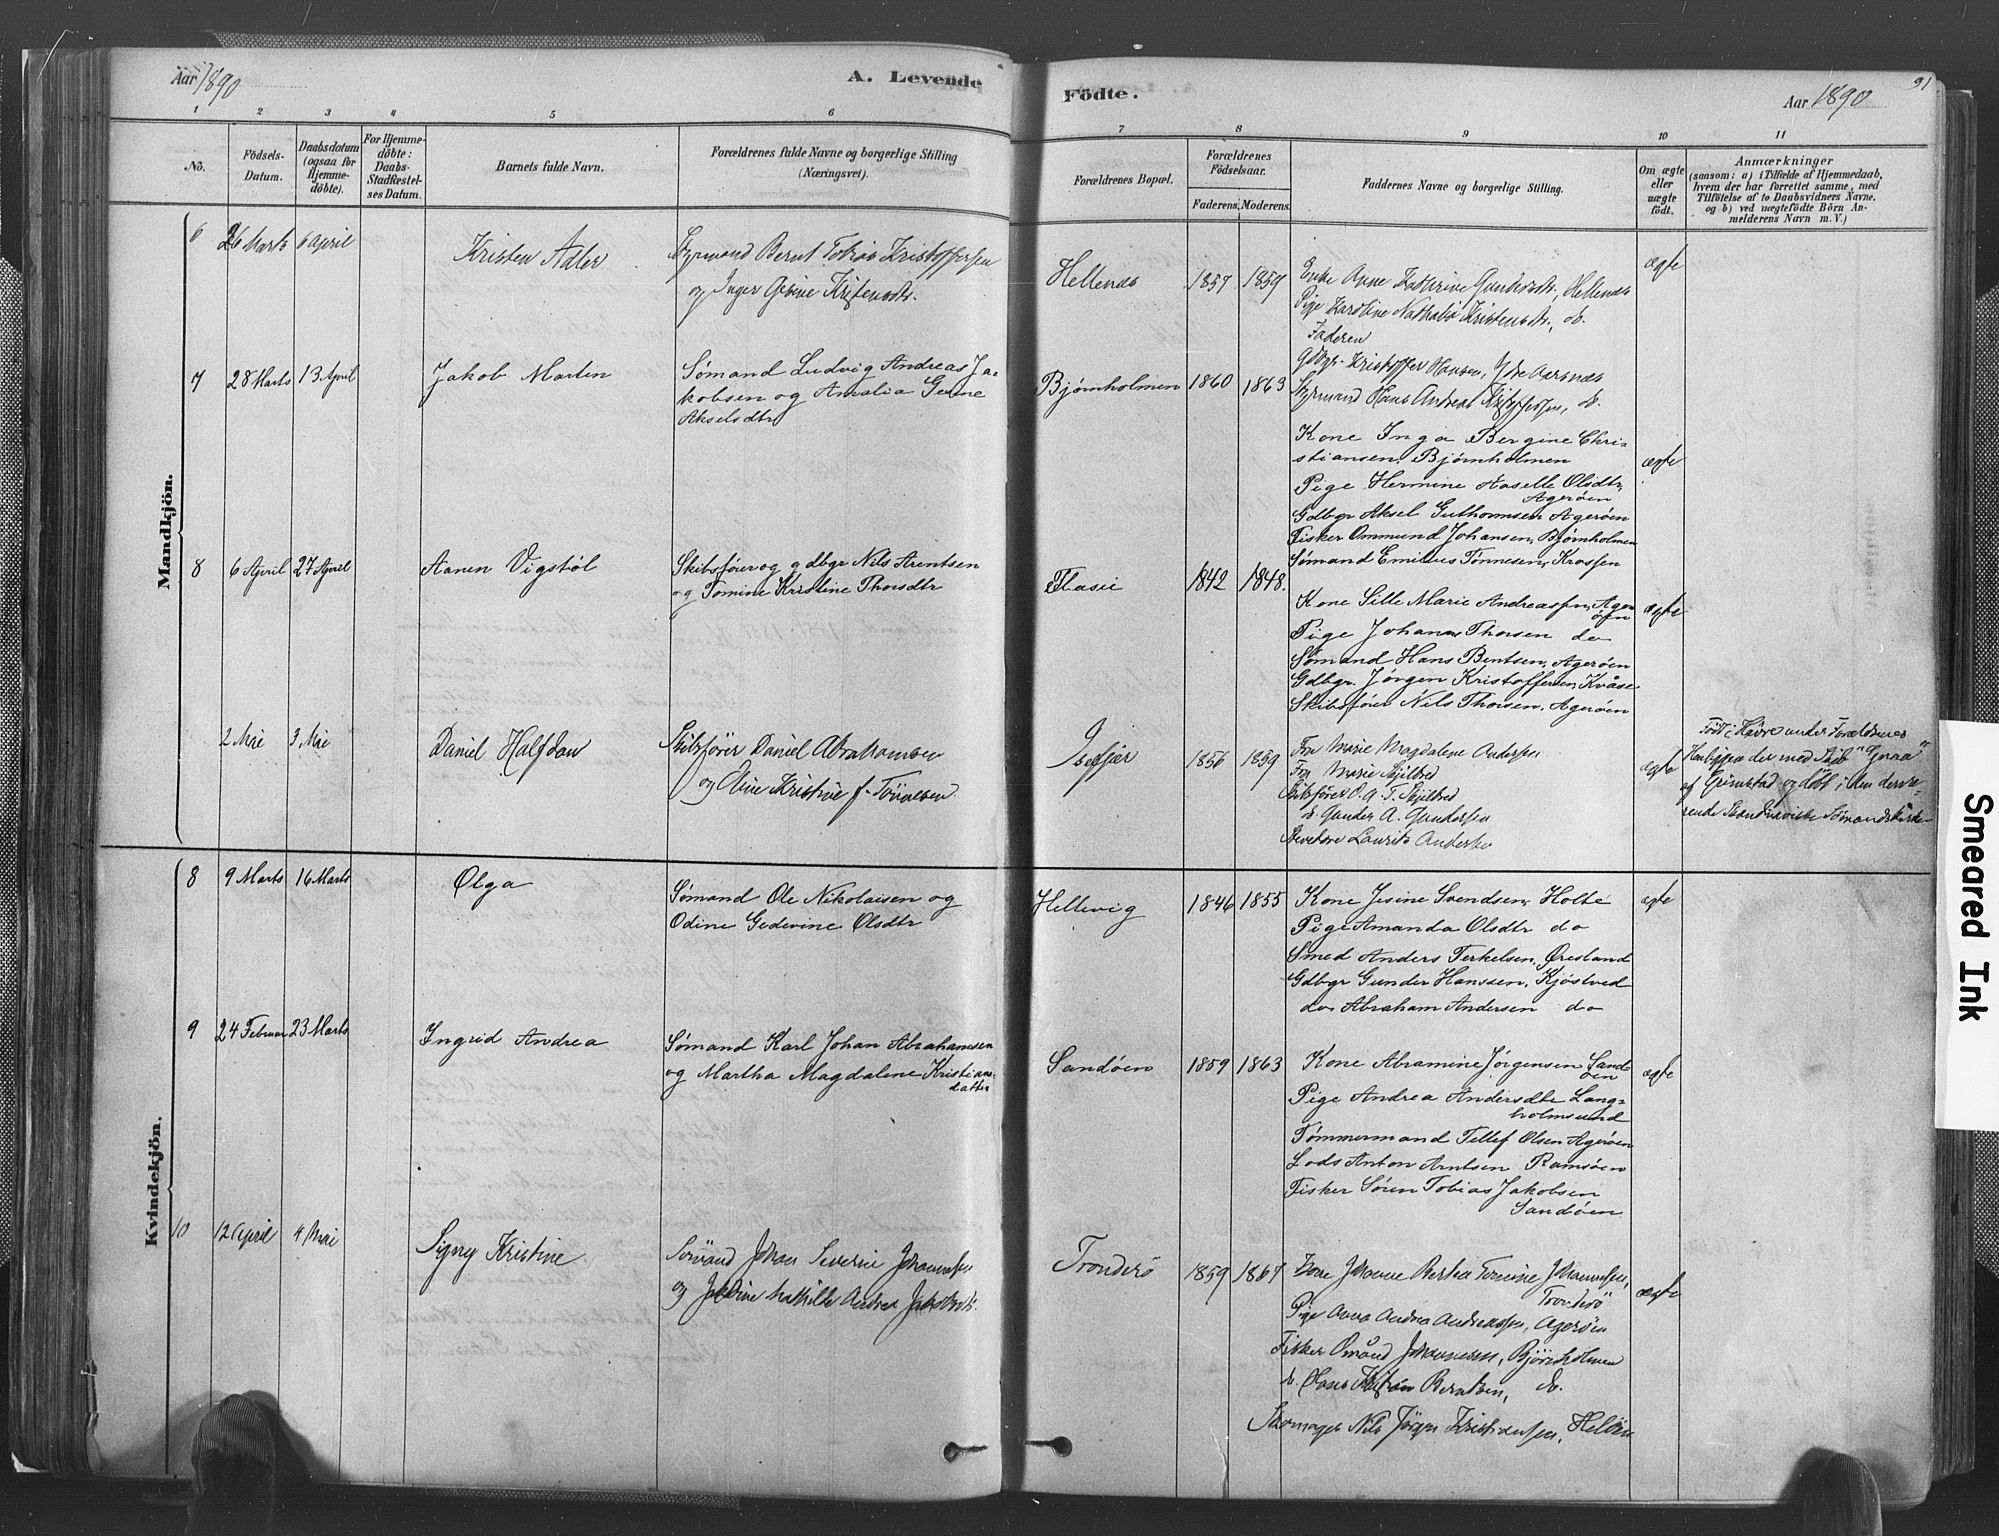 Aar 1890
A. Levende
Födte.
Aar 1890
91
1 2 3 4 5 6 7 8 9 10 11
No.
Födsels-
Datum.
Daabsdatum
(ogsaa for
Hjemme-
döbte).
For Hjemme-
döbte:
Daabs-
Stadfæstel-
ses Datum.
Barnets fulde Navn.
Forældrenes fulde Navne og borgerlige Stilling
(Næringsvei).
Forældrenes Bopæl.
Forældrenes
Födselsaar.
Faderens. Moderens.
Faddernes Navne og borgerlige Stilling.
Om ægte
eller
uægte
födt.
Anmærkninger
(saasom: a) i Tilfælde af Hjemmedaab,
hvem der har forrettet samme, med
Tilföielse af to Daabsvidners Navne,
og b) ved uægtefödte Börn An-
melderens Navn m. V.)
Mandkjön.
6 26 Marts 6 April
Kristen Adler
Styrmand Bernt Tobias Kristoffersen
og Inger Gesine Kristensdtr.
Hellenæs
1857 1859
Enke Anne Kathrine Gundersdtr, Hellenæs
Pige Karoline Nathalia Kristensdtr, do.
Faderen
Gdbgr. Kristoffer Hansen, Ytre Aarsnæs
Styrmand Hans Andreas Kristoffersen, do.
ægte
7 28 Marts 13 April
Jakob Martin
Sømand Ludvig Andreas Ja-
kobsen og Amalia Gesine
Akselsdtr
Bjørnholmen
1860 1863
Kone Inga Bergine Chri-
stiansen, Bjørnholmen
Pige Hermine Aaselle Olsdtr,
Agerøen
Gdbgr Aksel Guthormsen Agerøen
Fisker Ommund Johansen, Bjørnholmen
Sømand Emilius Tønnesen, Krossen
ægte
8 6 April 27 April
Aanen Vigstøl
Skibsfører og gdbgr Nils Arentsen
og Tomine Kristine Thorsdtr
1842 1848.
Kone Sille Marie Andreassen, Ager
øen
Pige Johanne Thorsen do
Sømand Hans Bentsen, Agerøen
Gdbgr. Jørgen Kristoffersen, Kvåse
Skibsfører Nils Thorsen, Agerøen
ægte
2 Mai 3 Mai
Daniel Halfdan
Skibsfører Daniel Abrahamsen
og Eline Kristine f.
1856 1859
Fru Marie Magdalene Andersen
Fru Marie
Skibsfører O. A. T.
do. Gunder A. Gundersen
Laurits Andersen
ægte
Født i Havre under Forældrenes
der med Skib
af Grimstad og døbt i den
rende Skandinaviske Sømandskirke
Kvindekjön.
8 9 Marts 16 Marts
Olga
Sømand Ole Nikolaisen og
Odine Gedevine Olsdtr
Hellevig
1846 1855
Kone Jesine Svendsen, Holte
Pige Amanda Olsdtr do
Smed Anders Terkelsen, Øresland
Gdbgr Gunder Hanssen, Kjøstved
do Abraham Andersen do
ægte
9 24 Februar 23 Marts
Ingrid Andrea
Sømand Karl Johan Abrahamsen
og Martha Magdalene Kristians-
datter
Sandøen
1859 1863
Kone Abramine Jørgensen Sand
øen
Pige Andrea Andersdtr Lang-
holmsund
Tømmermand Tellef Olsen Agerøen
Lods Anton Arntsen Ramsøen
Fisker Søren Tobias Jakobsen
Sandøen
ægte
10 12 April 4 Mai
Signy Kristine
Sømand Johan Severin Johannesen
og Mathilde Andrea Jakobsdtr.
Tronderö
1859 1867
Kone Johanne Bertea Tomine Johannesen,
Tronderö
Pige Anna Andrea Andreassen, Agerøen
Fisker Ømund Johannesen, Bjørnholmen
do. Hans Kristian Berntsen, do.
Skomager Nils Jörgen Kristiansen, Helöen
ægte
Smeared Ink